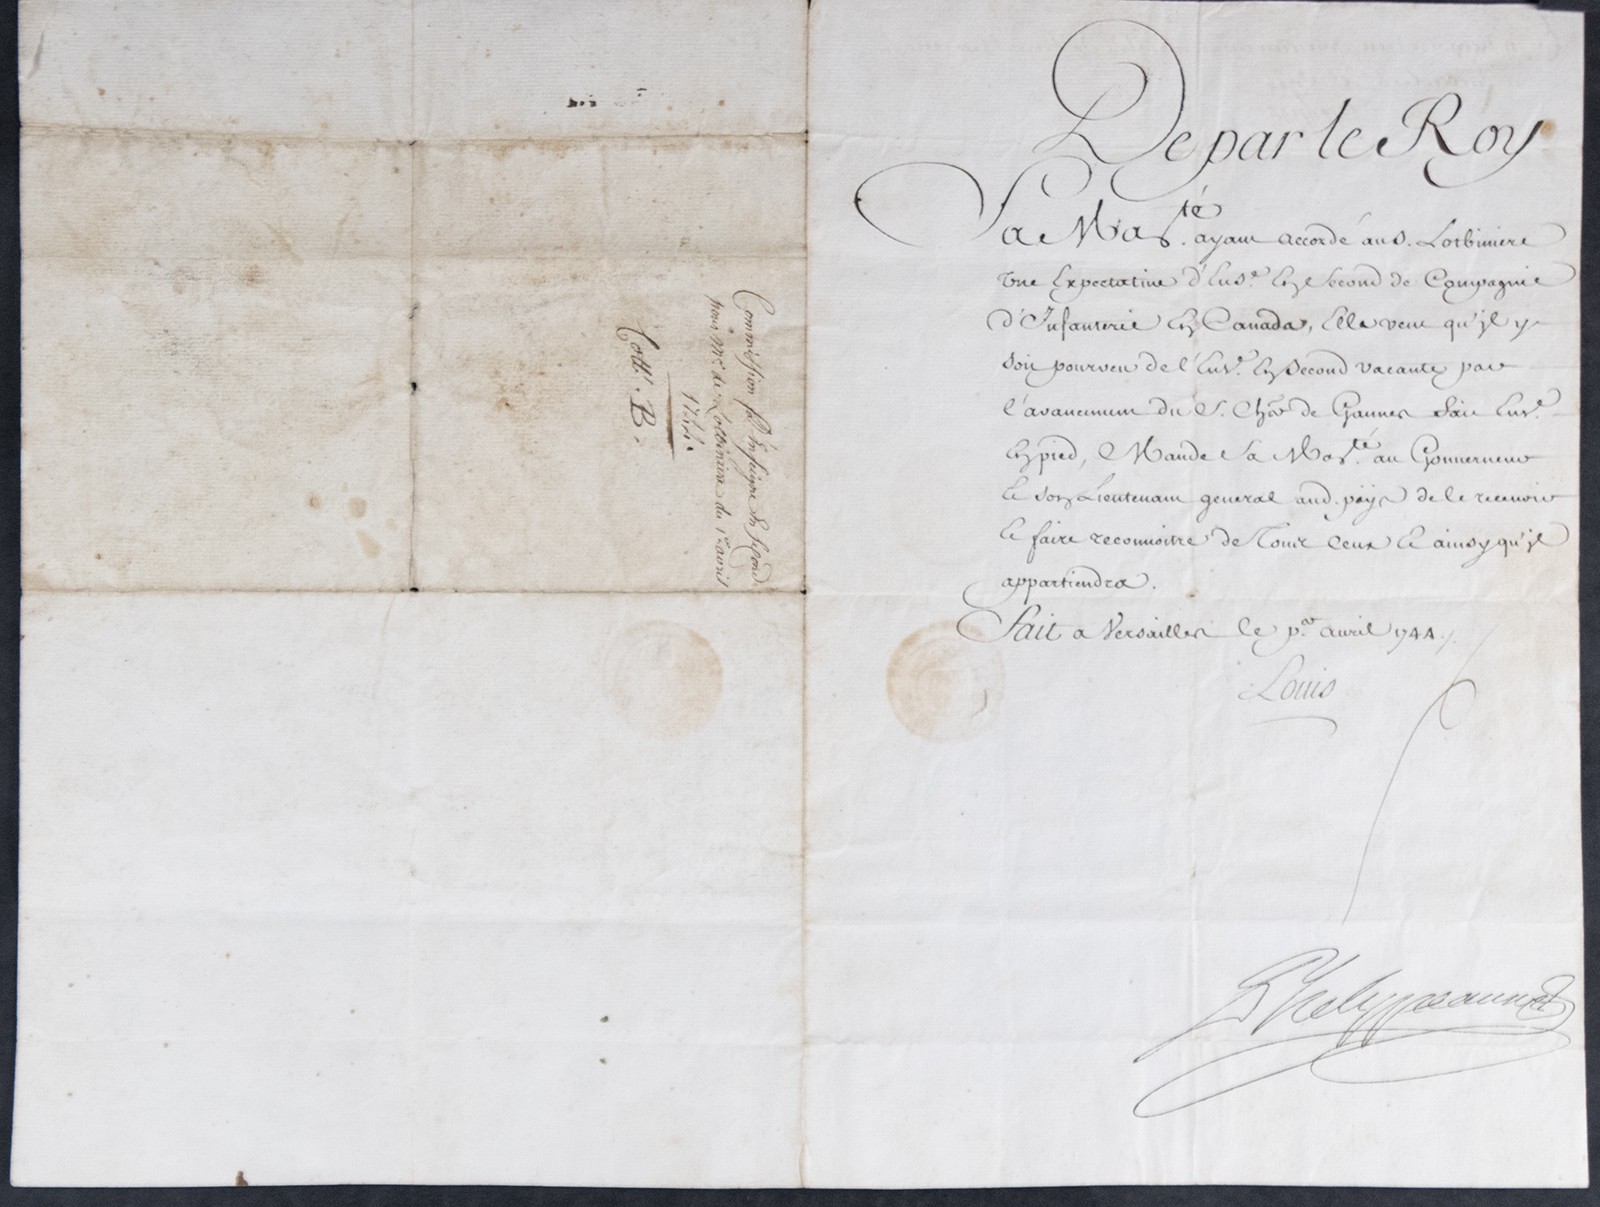 De par le Roy
Sa Ma.té ayant accordé au S. Lotbiniere
une Expectative d'Ens.e En second de Compagnie
d'Infanterie En Canada, Elle veut qu'jl y
soit pourveu de l'Ens.e En second vacante par
l'avancement du S. Ch.er de Gannes fait Ens.e
En pied, Mande Sa Ma.té au Gouverneur
Et son Lieutenant general aud. päys de le recevoir
Et faire reconnoitre de Tous ceux Et ainsy qu'jl
appartiendra.
Fait a Versailles le p.er avril 1744.
Louis
Phelypeaux
Commission d'Enseigne En Second
pour Mr. de Lotbiniere du 1er avril
1744.
Cotté B.